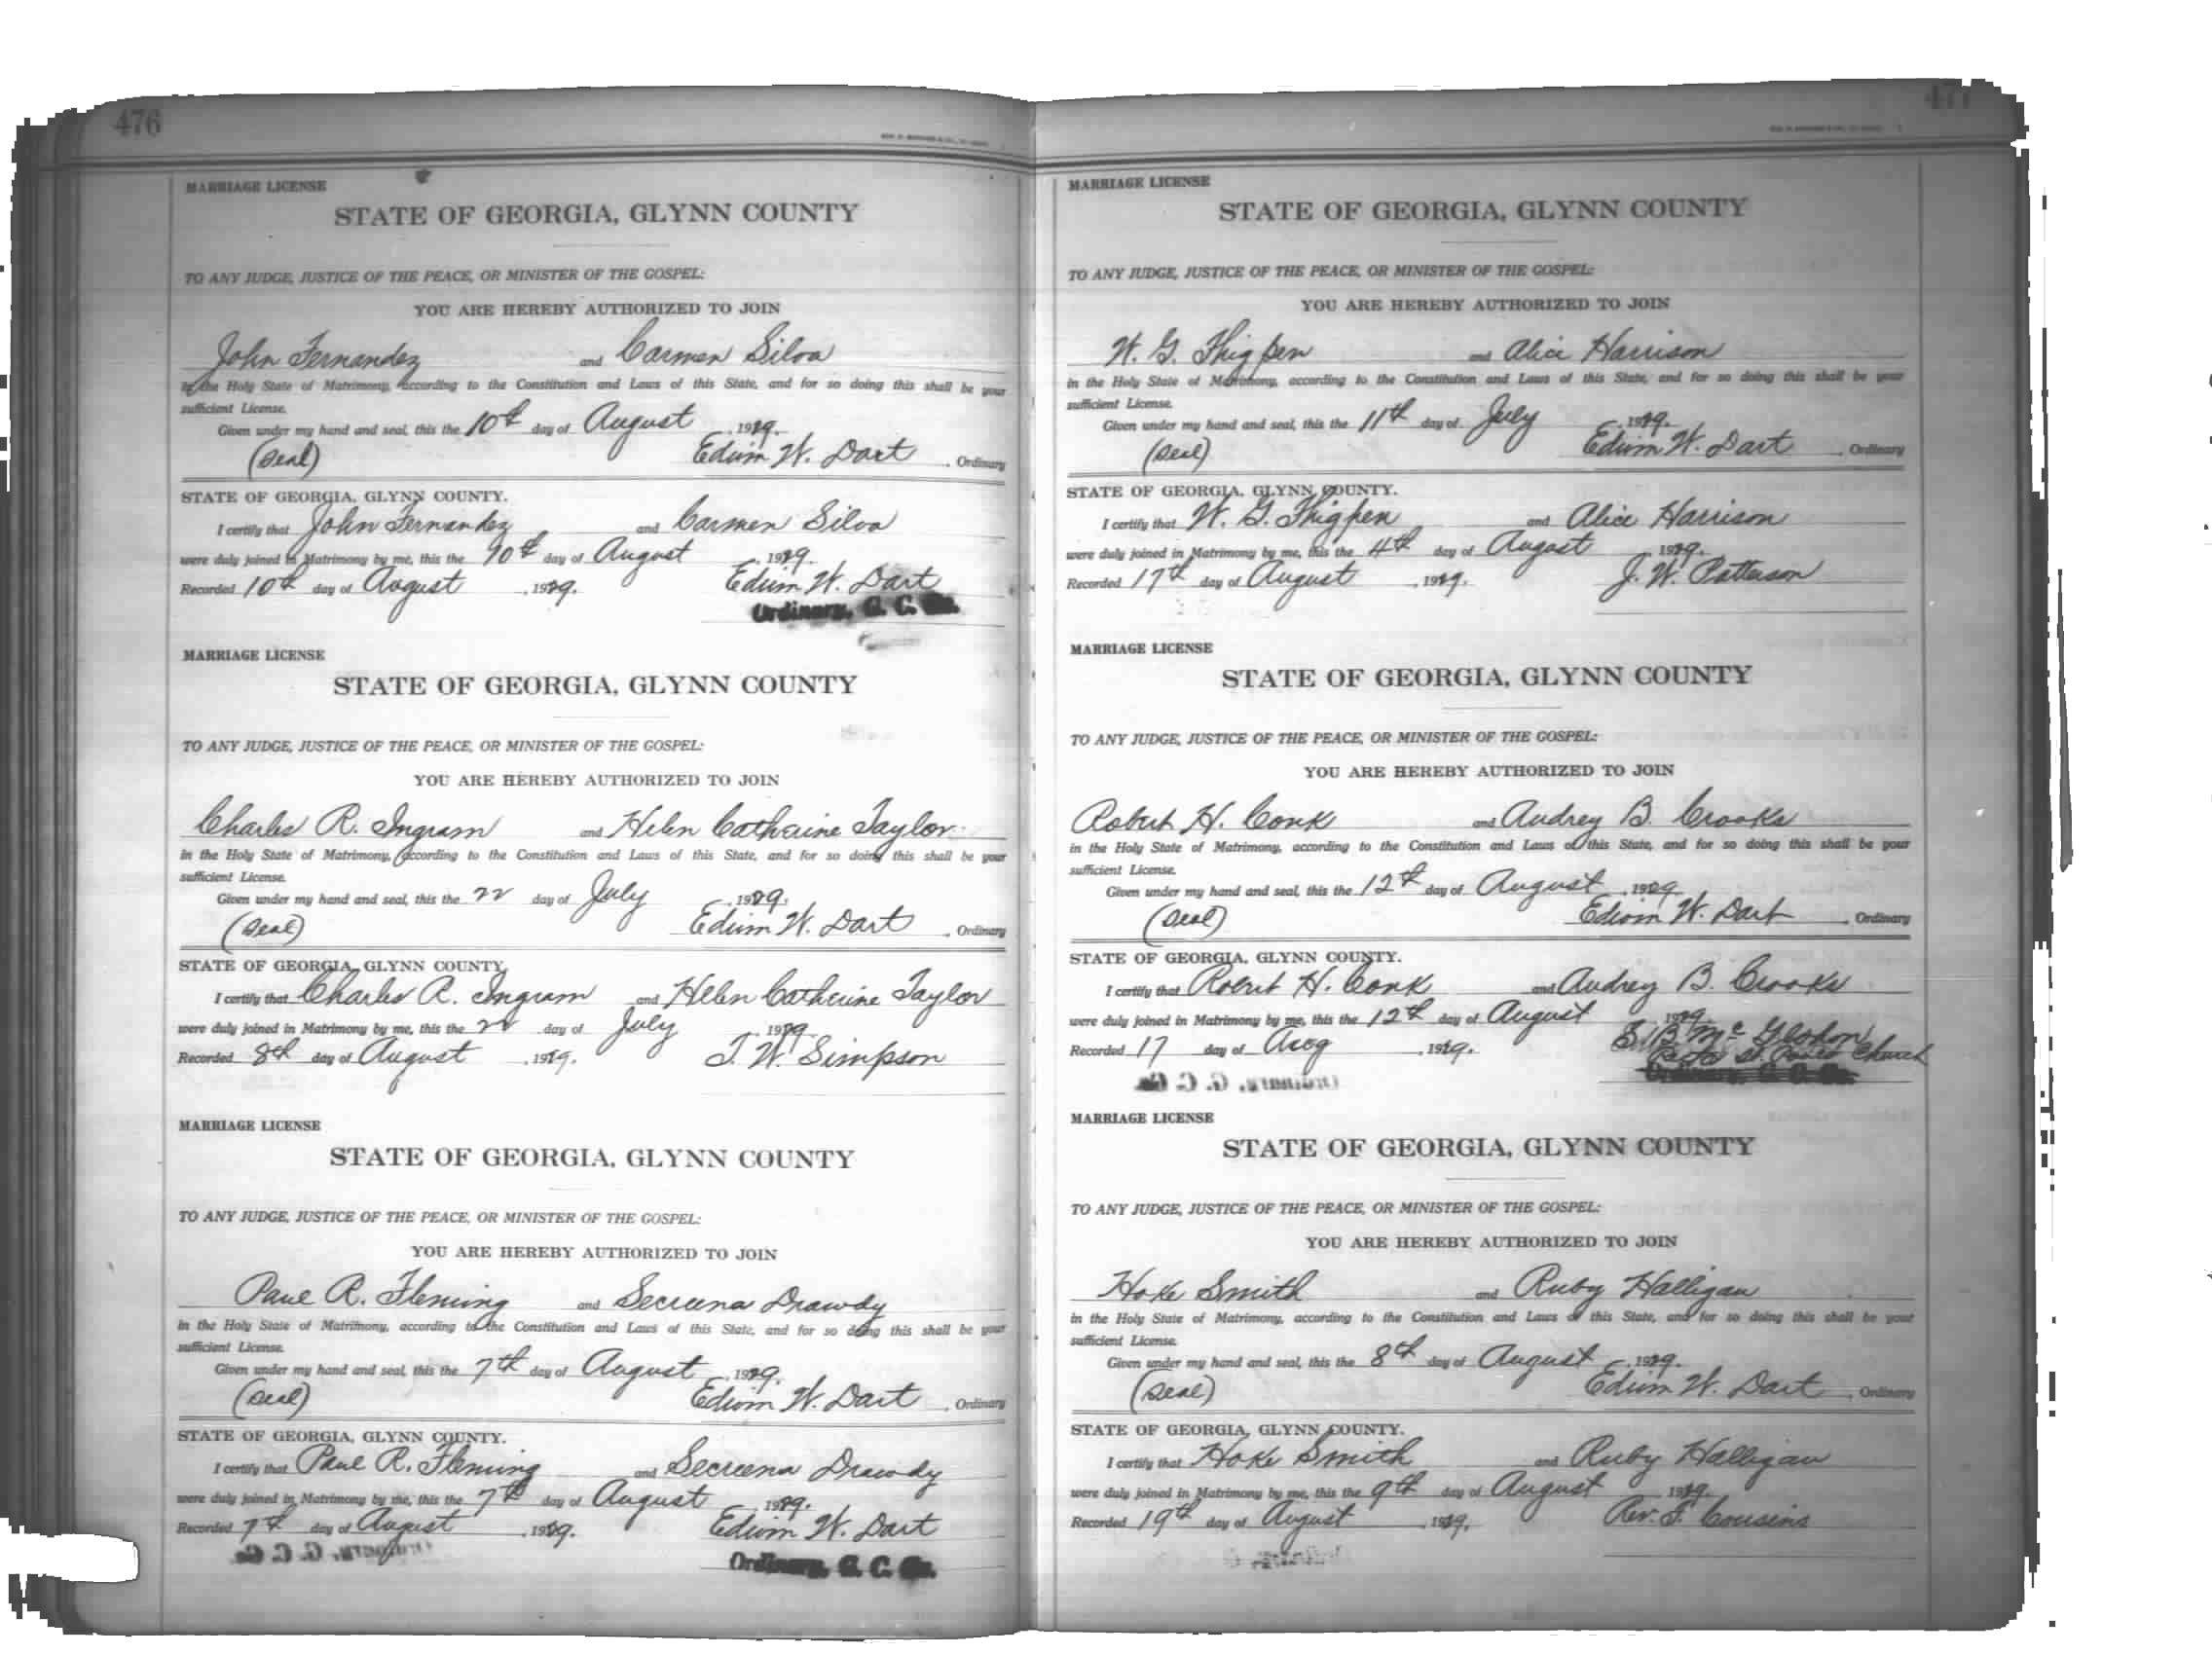 476
MARRIAGE LICENSE
STATE OF GEORGIA, GLYNN COUNTY
TO ANY JUDGE, JUSTICE OF THE PEACE, OR MINISTER OF THE GOSPEL:
YOU ARE HEREBY AUTHORIZED TO JOIN
John Fernandez and Carmen Silva
in the Holy State of Matrimony, according to the Constitution and Laws of this State, and for so doing this shall be your
sufficient License.
Given under my hand and seal, this the 10th day of August, 1929.
(Seal) Edwin W. Dart, Ordinary
STATE OF GEORGIA, GLYNN COUNTY.
I certify that John Fernandez and Carmen Silva
were duly joined in Matrimony by me, this the 10th day of August, 1929.
Recorded 10th day of August, 1929. Edwin W. Dart
Ordinary, G. C. Ga.
MARRIAGE LICENSE
STATE OF GEORGIA, GLYNN COUNTY
TO ANY JUDGE, JUSTICE OF THE PEACE, OR MINISTER OF THE GOSPEL:
YOU ARE HEREBY AUTHORIZED TO JOIN
Charles R. Ingram and Helen Catherine Taylor
in the Holy State of Matrimony, according to the Constitution and Laws of this State, and for so doing this shall be your
sufficient License.
Given under my hand and seal, this the 22 day of July, 1929.
(Seal) Edwin W. Dart, Ordinary
STATE OF GEORGIA, GLYNN COUNTY.
I certify that Charles R. Ingram and Helen Catherine Taylor
were duly joined in Matrimony by me, this the 22 day of July, 1929
Recorded 8th day of August, 1929. T. W. Simpson
MARRIAGE LICENSE
STATE OF GEORGIA, GLYNN COUNTY
TO ANY JUDGE, JUSTICE OF THE PEACE, OR MINISTER OF THE GOSPEL:
YOU ARE HEREBY AUTHORIZED TO JOIN
Paul R. Fleming and Secreena Drawdy
in the Holy State of Matrimony, according to the Constitution and Laws of this State, and for so doing this shall be your
sufficient License.
Given under my hand and seal, this the 7th day of August, 1929.
(Seal) Edwin W. Dart, Ordinary
STATE OF GEORGIA, GLYNN COUNTY.
I certify that Paul R. Fleming and Secreena Drawdy
were duly joined in Matrimony by me, this the 7th day of August, 1929.
Recorded 7th day of August, 1929. Edwin W. Dart
Ordinary, G. C. Ga.
477
MARRIAGE LICENSE
STATE OF GEORGIA, GLYNN COUNTY
TO ANY JUDGE, JUSTICE OF THE PEACE, OR MINISTER OF THE GOSPEL:
YOU ARE HEREBY AUTHORIZED TO JOIN
W. G. Thigpen and Alice Harrison
in the Holy State of Matrimony, according to the Constitution and Laws of this State, and for so doing this shall be your
sufficient License.
Given under my hand and seal, this the 11th day of July, 1929.
(Seal) Edwin W. Dart, Ordinary
STATE OF GEORGIA, GLYNN COUNTY.
I certify that W. G. Thigpen and Alice Harrison
were duly joined in Matrimony by me, this the 4th day of August, 1929.
Recorded 17th day of August, 1929. J. W. Patterson
MARRIAGE LICENSE
STATE OF GEORGIA, GLYNN COUNTY
TO ANY JUDGE, JUSTICE OF THE PEACE, OR MINISTER OF THE GOSPEL:
YOU ARE HEREBY AUTHORIZED TO JOIN
Robert H. Conk and Audrey B. Crooks
in the Holy State of Matrimony, according to the Constitution and Laws of this State, and for so doing this shall be your
sufficient License.
Given under my hand and seal, this the 12th day of August, 1929
(Seal) Edwin W. Dart, Ordinary
STATE OF GEORGIA, GLYNN COUNTY.
I certify that Robert H. Conk and Audrey B. Crooks
were duly joined in Matrimony by me, this the 12th day of August, 1929.
Recorded 17 day of Aug, 1929. S. B. McGlohon
St. Church
Ordinary, G. C. Ga.
MARRIAGE LICENSE
STATE OF GEORGIA, GLYNN COUNTY
TO ANY JUDGE, JUSTICE OF THE PEACE, OR MINISTER OF THE GOSPEL:
YOU ARE HEREBY AUTHORIZED TO JOIN
Hoke Smith and Ruby Halligan
in the Holy State of Matrimony, according to the Constitution and Laws of this State, and for so doing this shall be your
sufficient License.
Given under my hand and seal, this the 8th day of August, 1929.
(Seal) Edwin W. Dart, Ordinary
STATE OF GEORGIA, GLYNN COUNTY.
I certify that Hoke Smith and Ruby Halligan
were duly joined in Matrimony by me, this the 9th day of August, 1929.
Recorded 19th day of August, 1929. Rev. F. Cousins